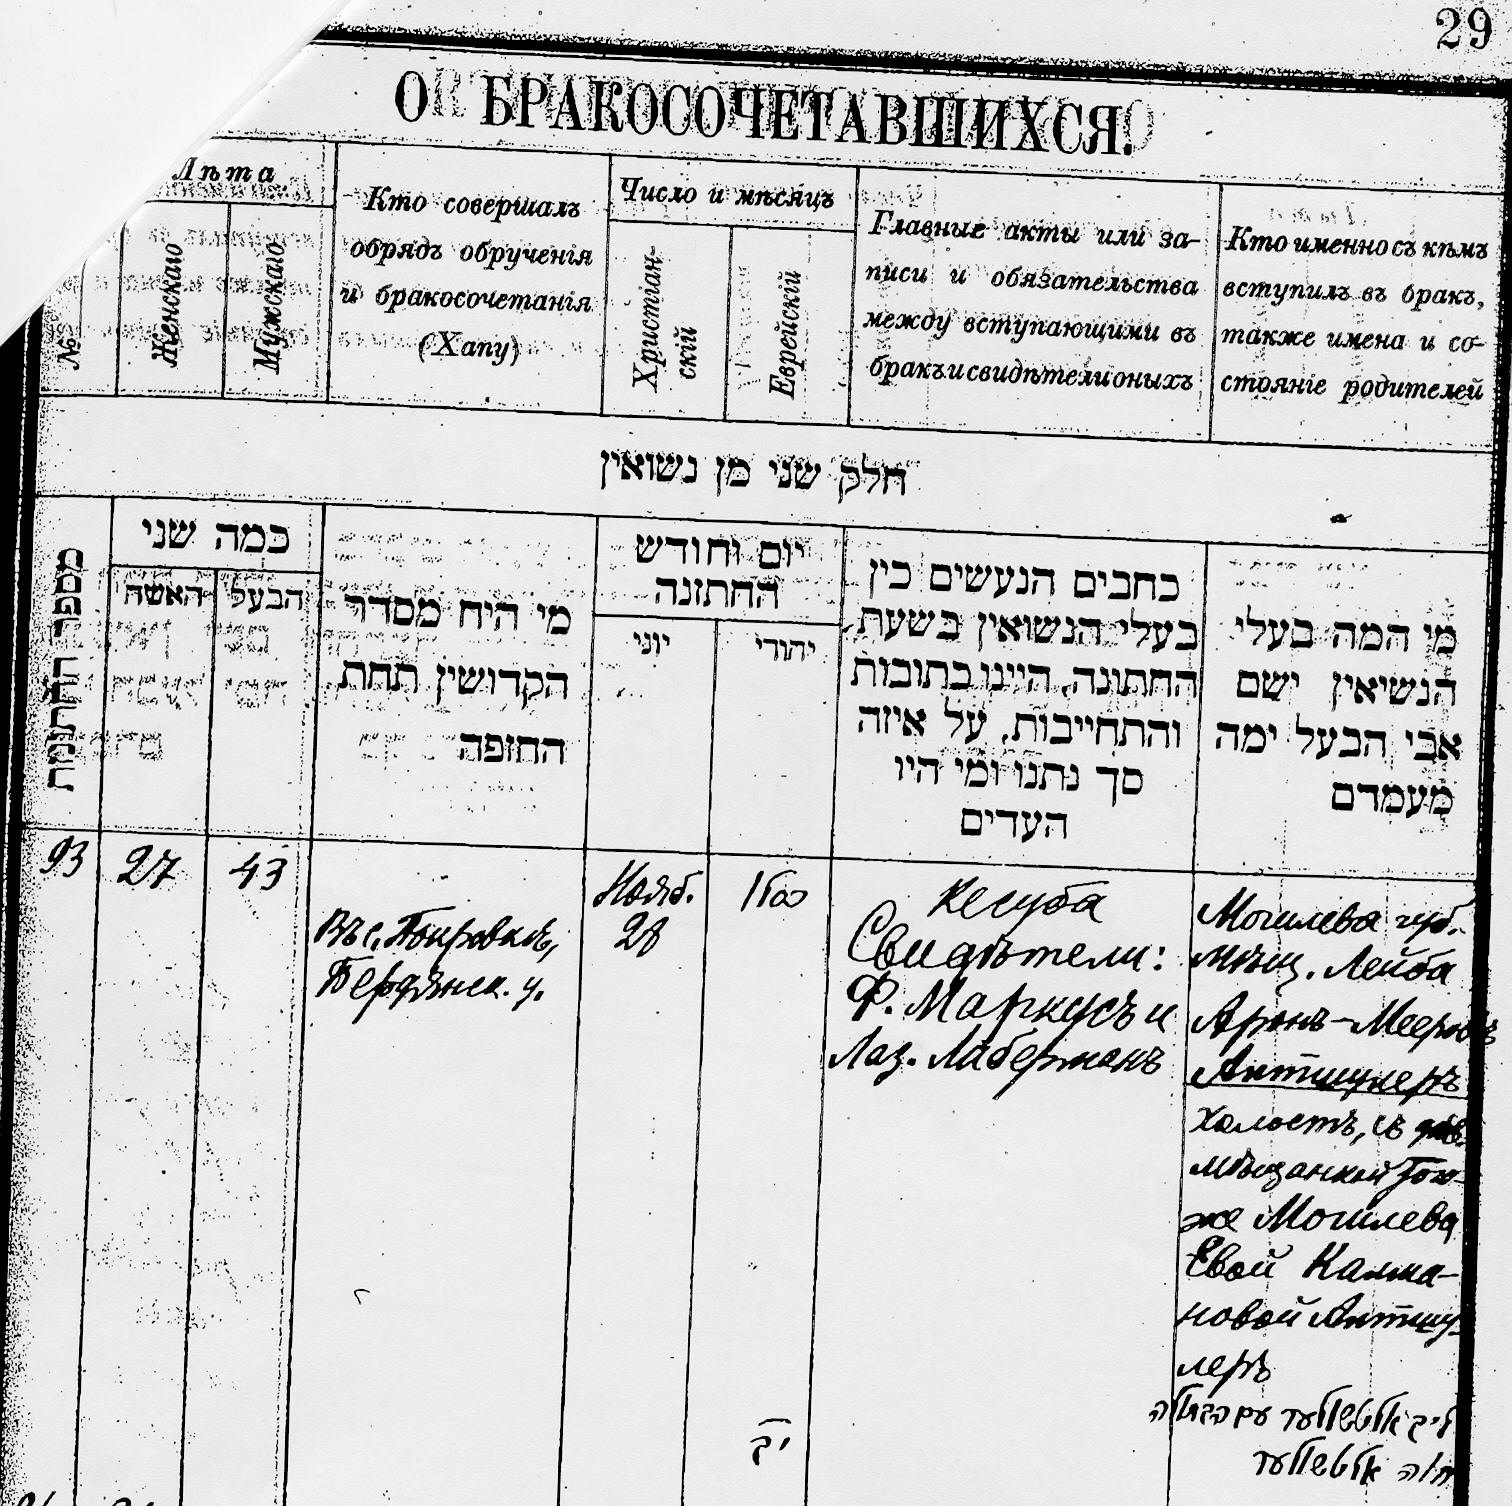 29
О БРАКОСОЧЕТАВШИХСЯ.
Лѣта
№
Женскаго
Мужскаго
Кто совершалъ
обрядъ обрученія
и бракосочетанія
(Хапу)
Число и мѣсяцъ
Христіан-
скій
Еврейскій
Главные акты или за-
писи и обязательства
между вступающими въ
бракъ и свидѣтели оныхъ
Кто именно съ кѣмъ
вступилъ въ бракъ,
также имена и со-
стояніе родителей
חלק שני מן נשואין
כמה שני
האשה
הבעל
מי היח מסדר
הקדושין תחת
החופה
יום וחודש
החתונה
יוני
יהודי
כחבים הנעשים כין
בעלי הנשואין בשעת
החתונה, היינו כתובות
והתחייבות, על איזה
סך נתנו ומי היו
העדים
מי המה בעלי
הנשיאין ישם
אבי הבעל ימה
מעמדם
93
27
43
Въ с.
Бердянск. у.
Нояб.
28
כסלו
יב
Кесуба
Свидѣтели:
Ф. Маркусъ и
Лаз. Лаберманъ
Могилева губ.
мѣщ. Лейба
Аронъ-Мееровъ
Антшулеръ
холостъ, съ
мѣщанкой того-
же Могилева
Евой Калма-
новой Антшу-
леръ
ליב אלטשולער עם הבתולה
חוה אלטשולער